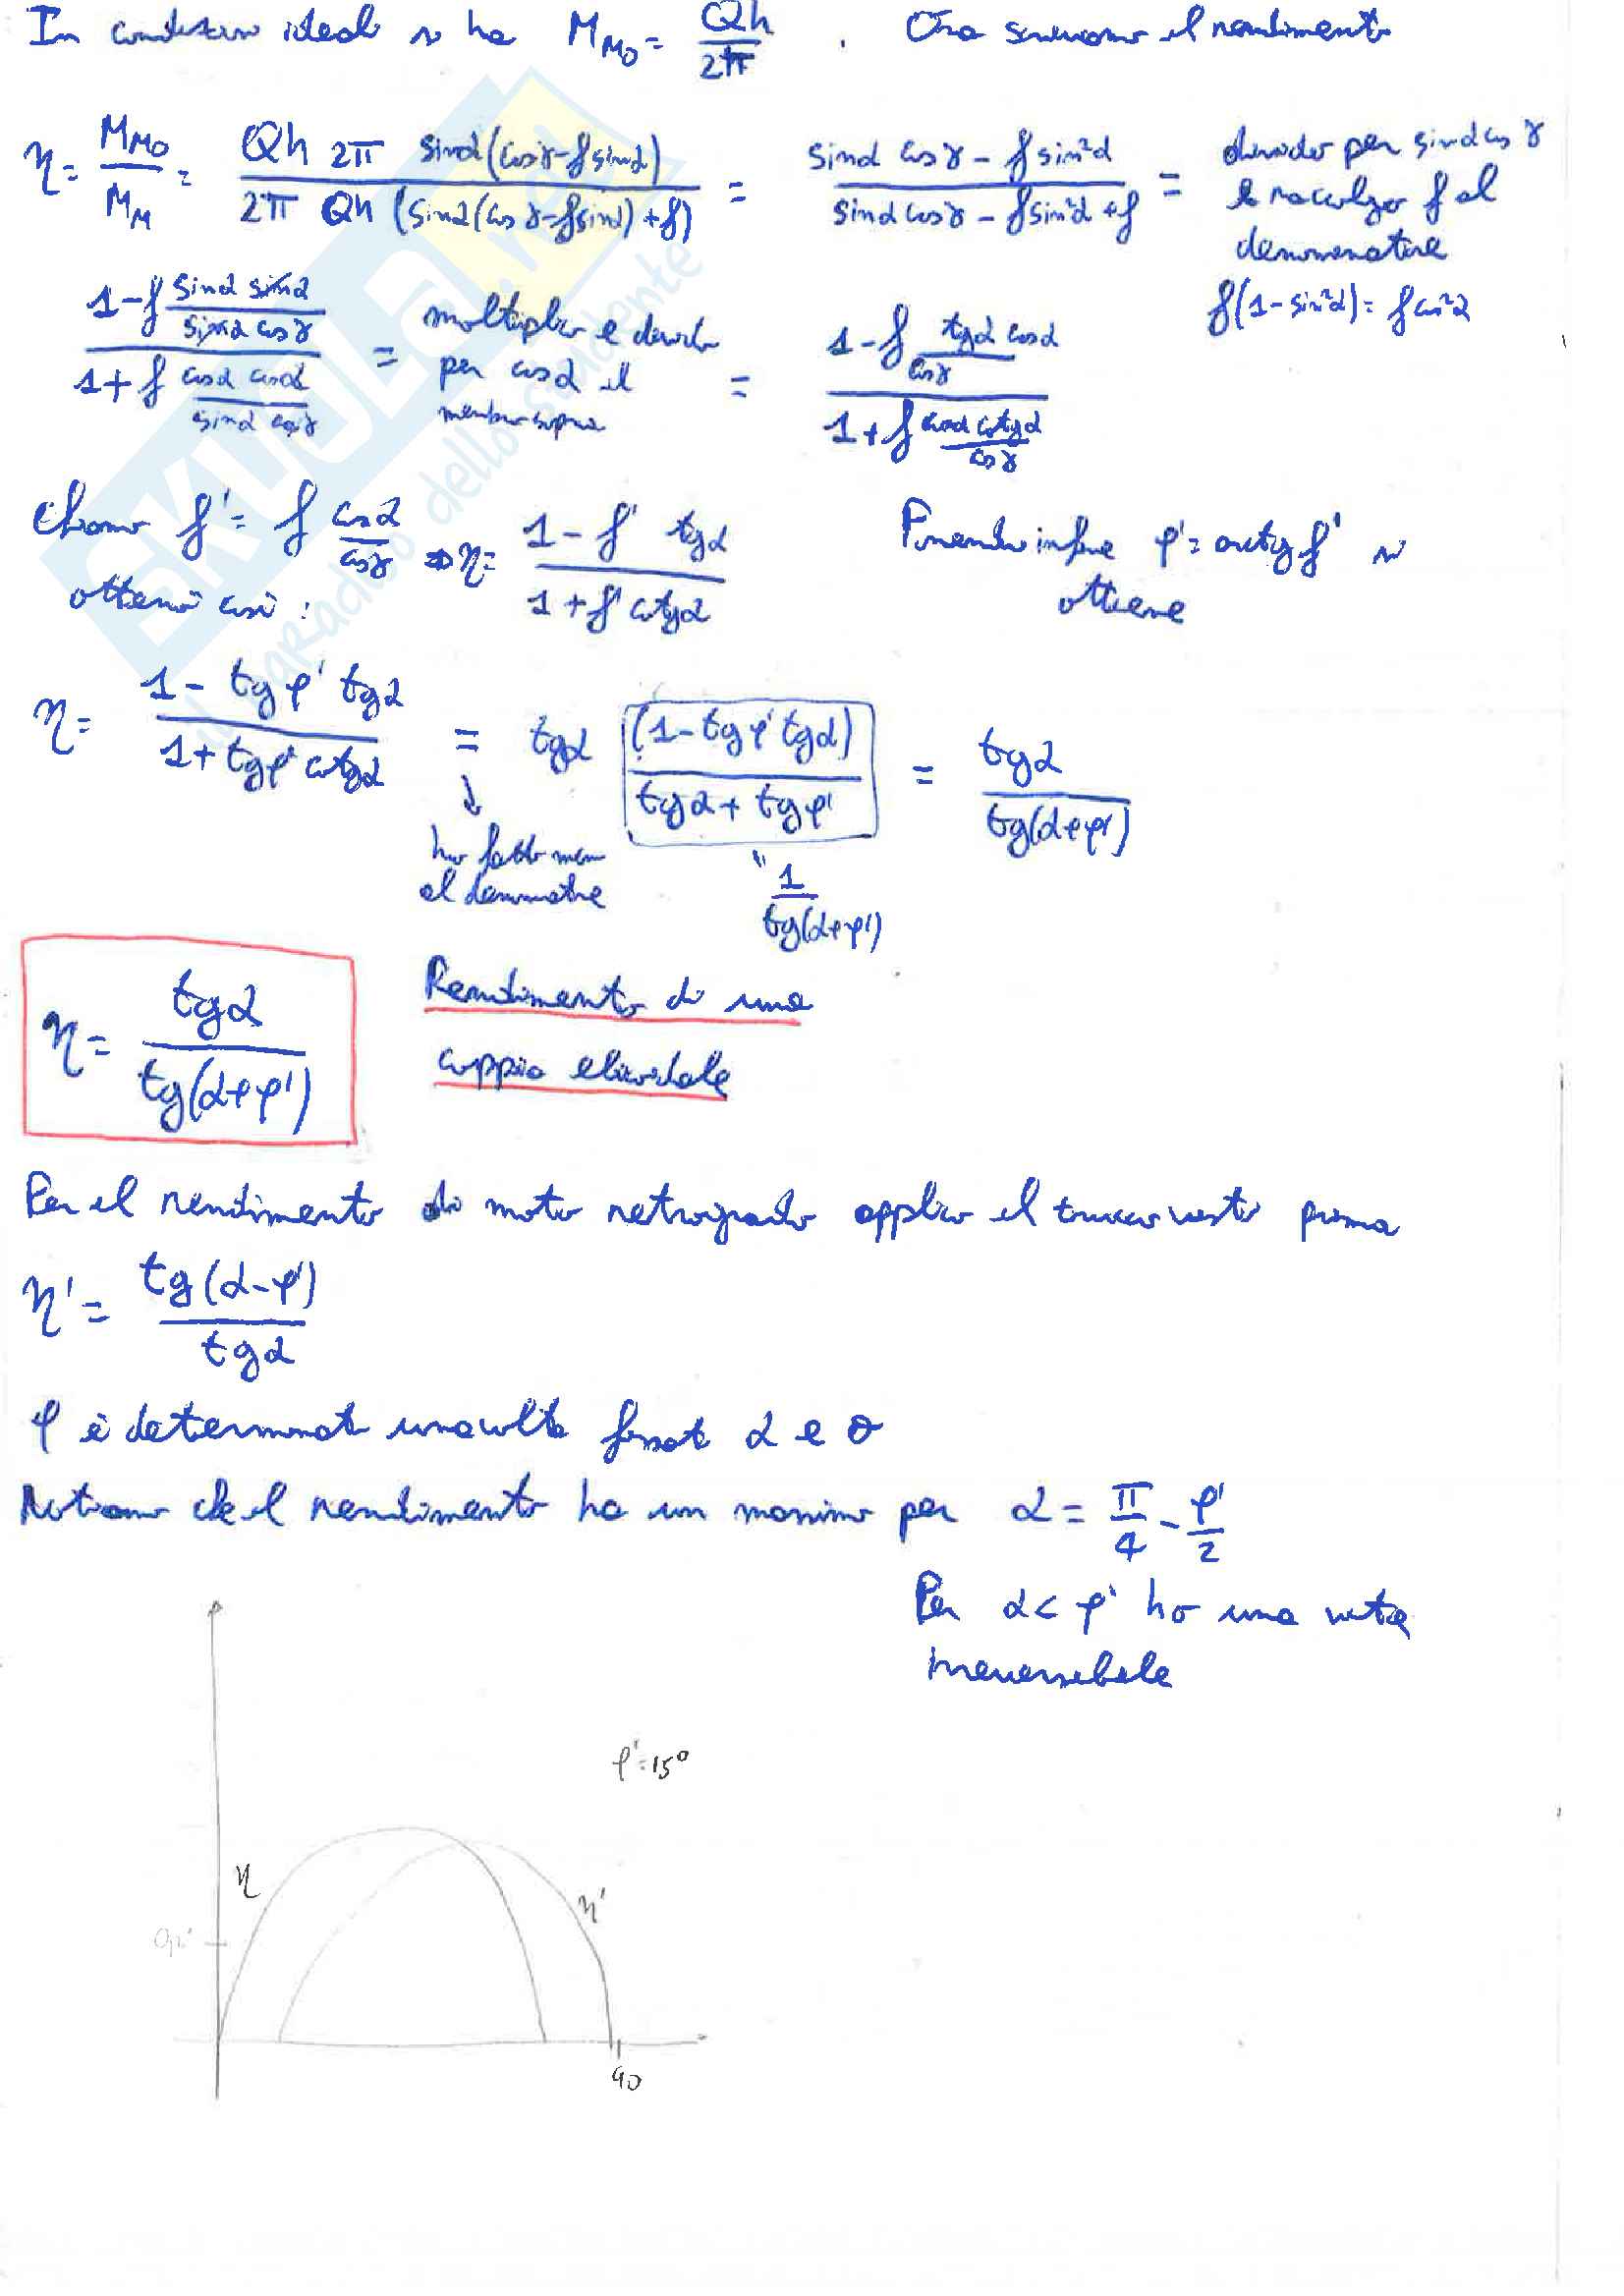 In condizioni ideali si ha M_M0 = Qh / 2π . Ora scriviamo il rendimento
η = M_M0 / M_M = Qh 2π sinα(cosγ - f sinα) / 2π Qh (sinα(cosγ - f sinα) + f) = sinα cosγ - f sin²α / sinα cosγ - f sin²α + f = divido per sinα cosγ
e raccolgo f al
denominatore
f(1 - sin²α) = f cos²α
1 - f sinα sinα / sinα cosγ / 1 + f cosα cosα / sinα cosγ = moltiplico e divido
per cosα il
membro sopra
= 1 - f tgα cosα / cosγ / 1 + f cosα cotgα / cosγ
Chiamo f' = f cosα / cosγ ⇒ η = 1 - f' tgα / 1 + f' cotgα
ottenió così :
Ponendo infine φ' = arctg f' si
ottiene
η = 1 - tgφ' tgα / 1 + tgφ' cotgα = tgα (1 - tgφ' tgα) / tgα + tgφ' = tgα / tg(α+φ')
↓
ho fatto mcm
al denominatore
" 1 / tg(α+φ')
η = tgα / tg(α+φ')
Rendimento di una
coppia elicoidale
Per il rendimento di moto retrogrado applico il trucco visto prima
η' = tg(α-φ') / tgα
φ è determinato una volta fissati α e σ
Notiamo che il rendimento ha un massimo per α = π/4 - φ'/2
Per α < φ' ho una vite
irreversibile
φ' = 15°
η
η'
90
SKUOLA.net
il paradiso dello studente